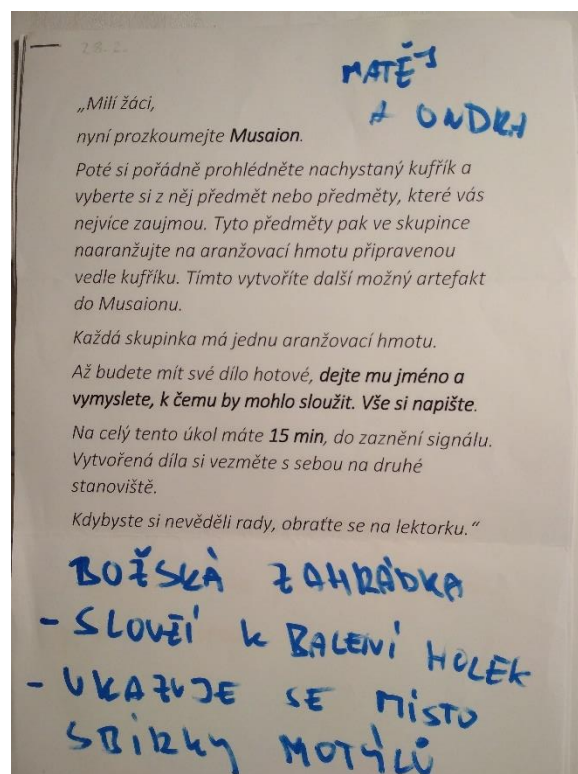 28.2.
MATĚJ
A ONDRA
„Milí žáci,
nyní prozkoumejte Musaion.
Poté si pořádně prohlédněte nachystaný kufřík a
vyberte si z něj předmět nebo předměty, které vás
nejvíce zaujmou. Tyto předměty pak ve skupince
naaranžujte na aranžovací hmotu připravenou
vedle kufříku. Tímto vytvoříte další možný artefakt
do Musaionu.
Každá skupinka má jednu aranžovací hmotu.
Až budete mít své dílo hotové, dejte mu jméno a
vymyslete, k čemu by mohlo sloužit. Vše si napište.
Na celý tento úkol máte 15 min, do zaznění signálu.
Vytvořená díla si vezměte s sebou na druhé
stanoviště.
Kdybyste si nevěděli rady, obraťte se na lektorku.“
BOŽSKÁ ZAHRÁDKA
- SLOUŽÍ K BALENÍ HOLEK
- UKAZUJE SE MÍSTO
SBÍRKY MOTÝLŮ